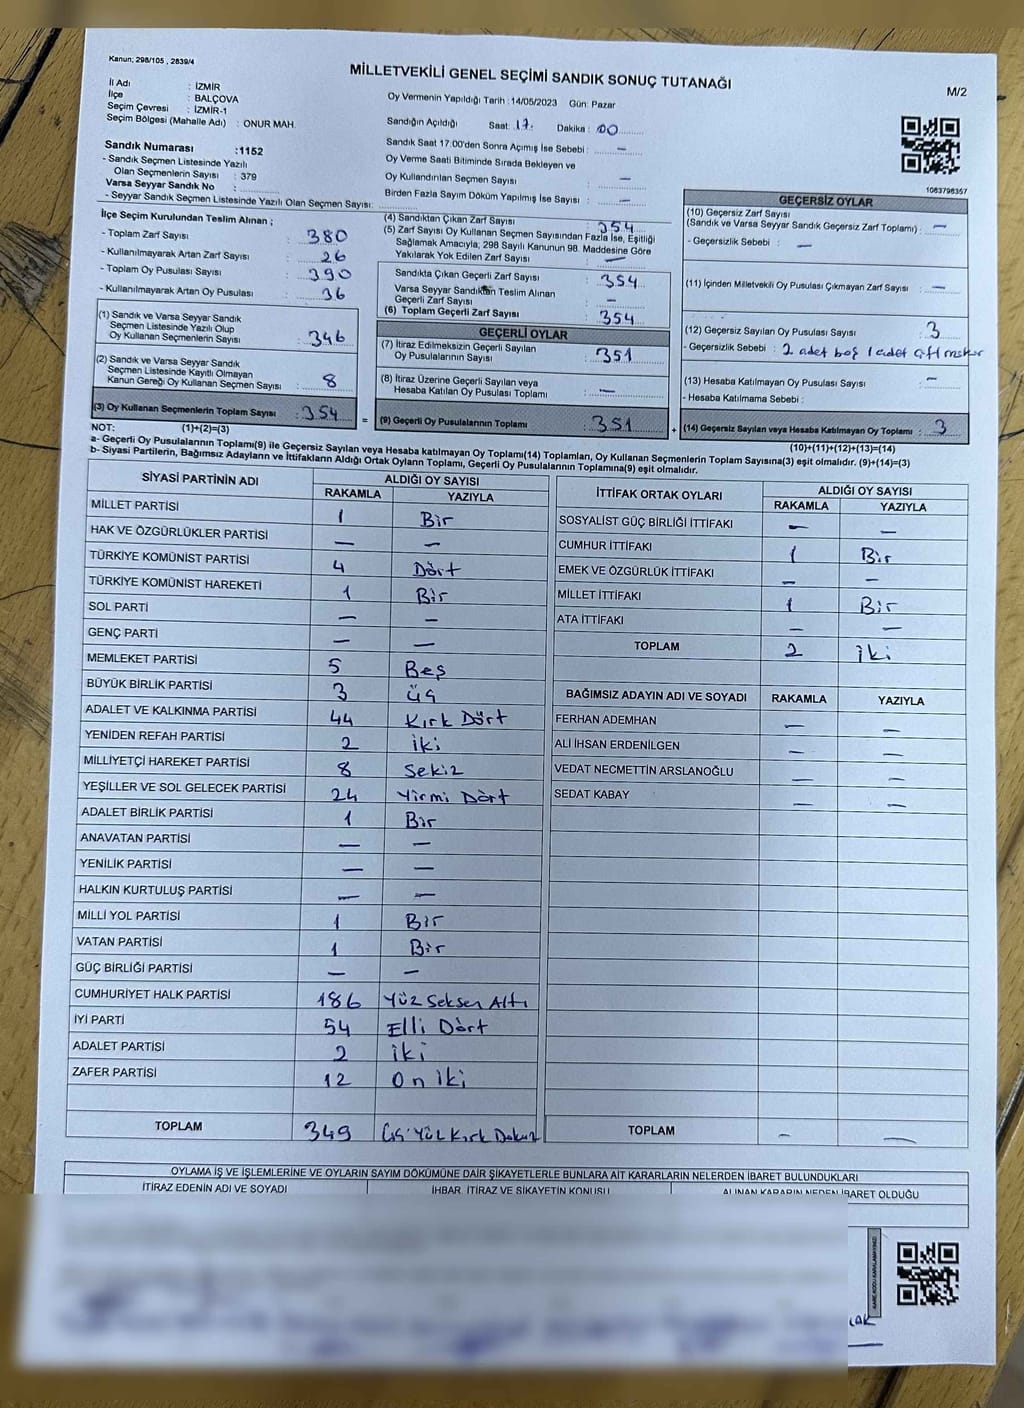 Kanun: 298/105 , 2839/4
MİLLETVEKİLİ GENEL SEÇİMİ SANDIK SONUÇ TUTANAĞI
M/2
İl Adı : İZMİR
İlçe : BALÇOVA
Seçim Çevresi : İZMİR-1
Seçim Bölgesi (Mahalle Adı) : ONUR MAH.
Oy Vermenin Yapıldığı Tarih :14/05/2023 Gün: Pazar
Sandığın Açıldığı Saat: 17. Dakika : 00
Sandık Saat 17.00'den Sonra Açımış İse Sebebi : —
Oy Verme Saati Bitiminde Sırada Bekleyen ve
Oy Kullandırılan Seçmen Sayısı : —
Birden Fazla Sayım Döküm Yapılmış İse Sayısı : —
Sandık Numarası :1152
- Sandık Seçmen Listesinde Yazılı
Olan Seçmenlerin Sayısı : 379
Varsa Seyyar Sandık No :
- Seyyar Sandık Seçmen Listesinde Yazılı Olan Seçmen Sayısı:
1063796357
İlçe Seçim Kurulundan Teslim Alınan ;
- Toplam Zarf Sayısı : 380
- Kullanılmayarak Artan Zarf Sayısı : 26
- Toplam Oy Pusulası Sayısı : 390
- Kullanılmayarak Artan Oy Pusulası : 36
(1) Sandık ve Varsa Seyyar Sandık
Seçmen Listesinde Yazılı Olup
Oy Kullanan Seçmenlerin Sayısı : 346
(2) Sandık ve Varsa Seyyar Sandık
Seçmen Listesinde Kayıtlı Olmayan
Kanun Gereği Oy Kullanan Seçmen Sayısı : 8
(3) Oy Kullanan Seçmenlerin Toplam Sayısı : 354
(4) Sandıktan Çıkan Zarf Sayısı : 354
(5) Zarf Sayısı Oy Kullanan Seçmen Sayısından Fazla İse, Eşitliği
Sağlamak Amacıyla, 298 Sayılı Kanunun 98. Maddesine Göre
Yakılarak Yok Edilen Zarf Sayısı : —
Sandıkta Çıkan Geçerli Zarf Sayısı : 354
Varsa Seyyar Sandıktan Teslim Alınan
Geçerli Zarf Sayısı : —
(6) Toplam Geçerli Zarf Sayısı : 354
GEÇERLİ OYLAR
(7) İtiraz Edilmeksizin Geçerli Sayılan
Oy Pusulalarının Sayısı : 351
(8) İtiraz Üzerine Geçerli Sayılan veya
Hesaba Katılan Oy Pusulası Toplamı : —
= (9) Geçerli Oy Pusulalarının Toplamı : 351
GEÇERSİZ OYLAR
(10) Geçersiz Zarf Sayısı
(Sandık ve Varsa Seyyar Sandık Geçersiz Zarf Toplamı) : —
- Geçersizlik Sebebi : —
(11) İçinden Milletvekili Oy Pusulası Çıkmayan Zarf Sayısı : —
(12) Geçersiz Sayılan Oy Pusulası Sayısı : 3
- Geçersizlik Sebebi : 2 adet boş 1 adet çift mühür
(13) Hesaba Katılmayan Oy Pusulası Sayısı : —
- Hesaba Katılmama Sebebi :
+ (14) Geçersiz Sayılan veya Hesaba Katılmayan Oy Toplamı : 3
NOT: (1)+(2)=(3) (10)+(11)+(12)+(13)=(14)
a- Geçerli Oy Pusulalarının Toplamı(9) ile Geçersiz Sayılan veya Hesaba katılmayan Oy Toplamı(14) Toplamları, Oy Kullanan Seçmenlerin Toplam Sayısına(3) eşit olmalıdır. (9)+(14)=(3)
b- Siyasi Partilerin, Bağımsız Adayların ve İttifakların Aldığı Ortak Oyların Toplamı, Geçerli Oy Pusulalarının Toplamına(9) eşit olmalıdır.
SİYASİ PARTİNİN ADI ALDIĞI OY SAYISI
RAKAMLA YAZIYLA
MİLLET PARTİSİ 1 Bir
HAK VE ÖZGÜRLÜKLER PARTİSİ — —
TÜRKİYE KOMÜNİST PARTİSİ 4 Dört
TÜRKİYE KOMÜNİST HAREKETİ 1 Bir
SOL PARTİ — —
GENÇ PARTİ — —
MEMLEKET PARTİSİ 5 Beş
BÜYÜK BİRLİK PARTİSİ 3 Üç
ADALET VE KALKINMA PARTİSİ 44 Kırk Dört
YENİDEN REFAH PARTİSİ 2 İki
MİLLİYETÇİ HAREKET PARTİSİ 8 Sekiz
YEŞİLLER VE SOL GELECEK PARTİSİ 24 Yirmi Dört
ADALET BİRLİK PARTİSİ 1 Bir
ANAVATAN PARTİSİ — —
YENİLİK PARTİSİ — —
HALKIN KURTULUŞ PARTİSİ — —
MİLLİ YOL PARTİSİ 1 Bir
VATAN PARTİSİ 1 Bir
GÜÇ BİRLİĞİ PARTİSİ — —
CUMHURİYET HALK PARTİSİ 186 Yüz Seksen Altı
İYİ PARTİ 54 Elli Dört
ADALET PARTİSİ 2 İki
ZAFER PARTİSİ 12 On İki
TOPLAM 349 Üç Yüz Kırk Dokuz
İTTİFAK ORTAK OYLARI ALDIĞI OY SAYISI
RAKAMLA YAZIYLA
SOSYALİST GÜÇ BİRLİĞİ İTTİFAKI — —
CUMHUR İTTİFAKI 1 Bir
EMEK VE ÖZGÜRLÜK İTTİFAKI — —
MİLLET İTTİFAKI 1 Bir
ATA İTTİFAKI — —
TOPLAM 2 İki
BAĞIMSIZ ADAYIN ADI VE SOYADI RAKAMLA YAZIYLA
FERHAN ADEMHAN — —
ALİ İHSAN ERDENİLGEN — —
VEDAT NECMETTİN ARSLANOĞLU — —
SEDAT KABAY — —
TOPLAM — —
OYLAMA İŞ VE İŞLEMLERİNE VE OYLARIN SAYIM DÖKÜMÜNE DAİR ŞİKAYETLERLE BUNLARA AİT KARARLARIN NELERDEN İBARET BULUNDUKLARI
İTİRAZ EDENİN ADI VE SOYADI İHBAR, İTİRAZ VE ŞİKAYETİN KONUSU ALINAN KARARIN NEDEN İBARET OLDUĞU
KAREKODU KARALAMAYINIZ!